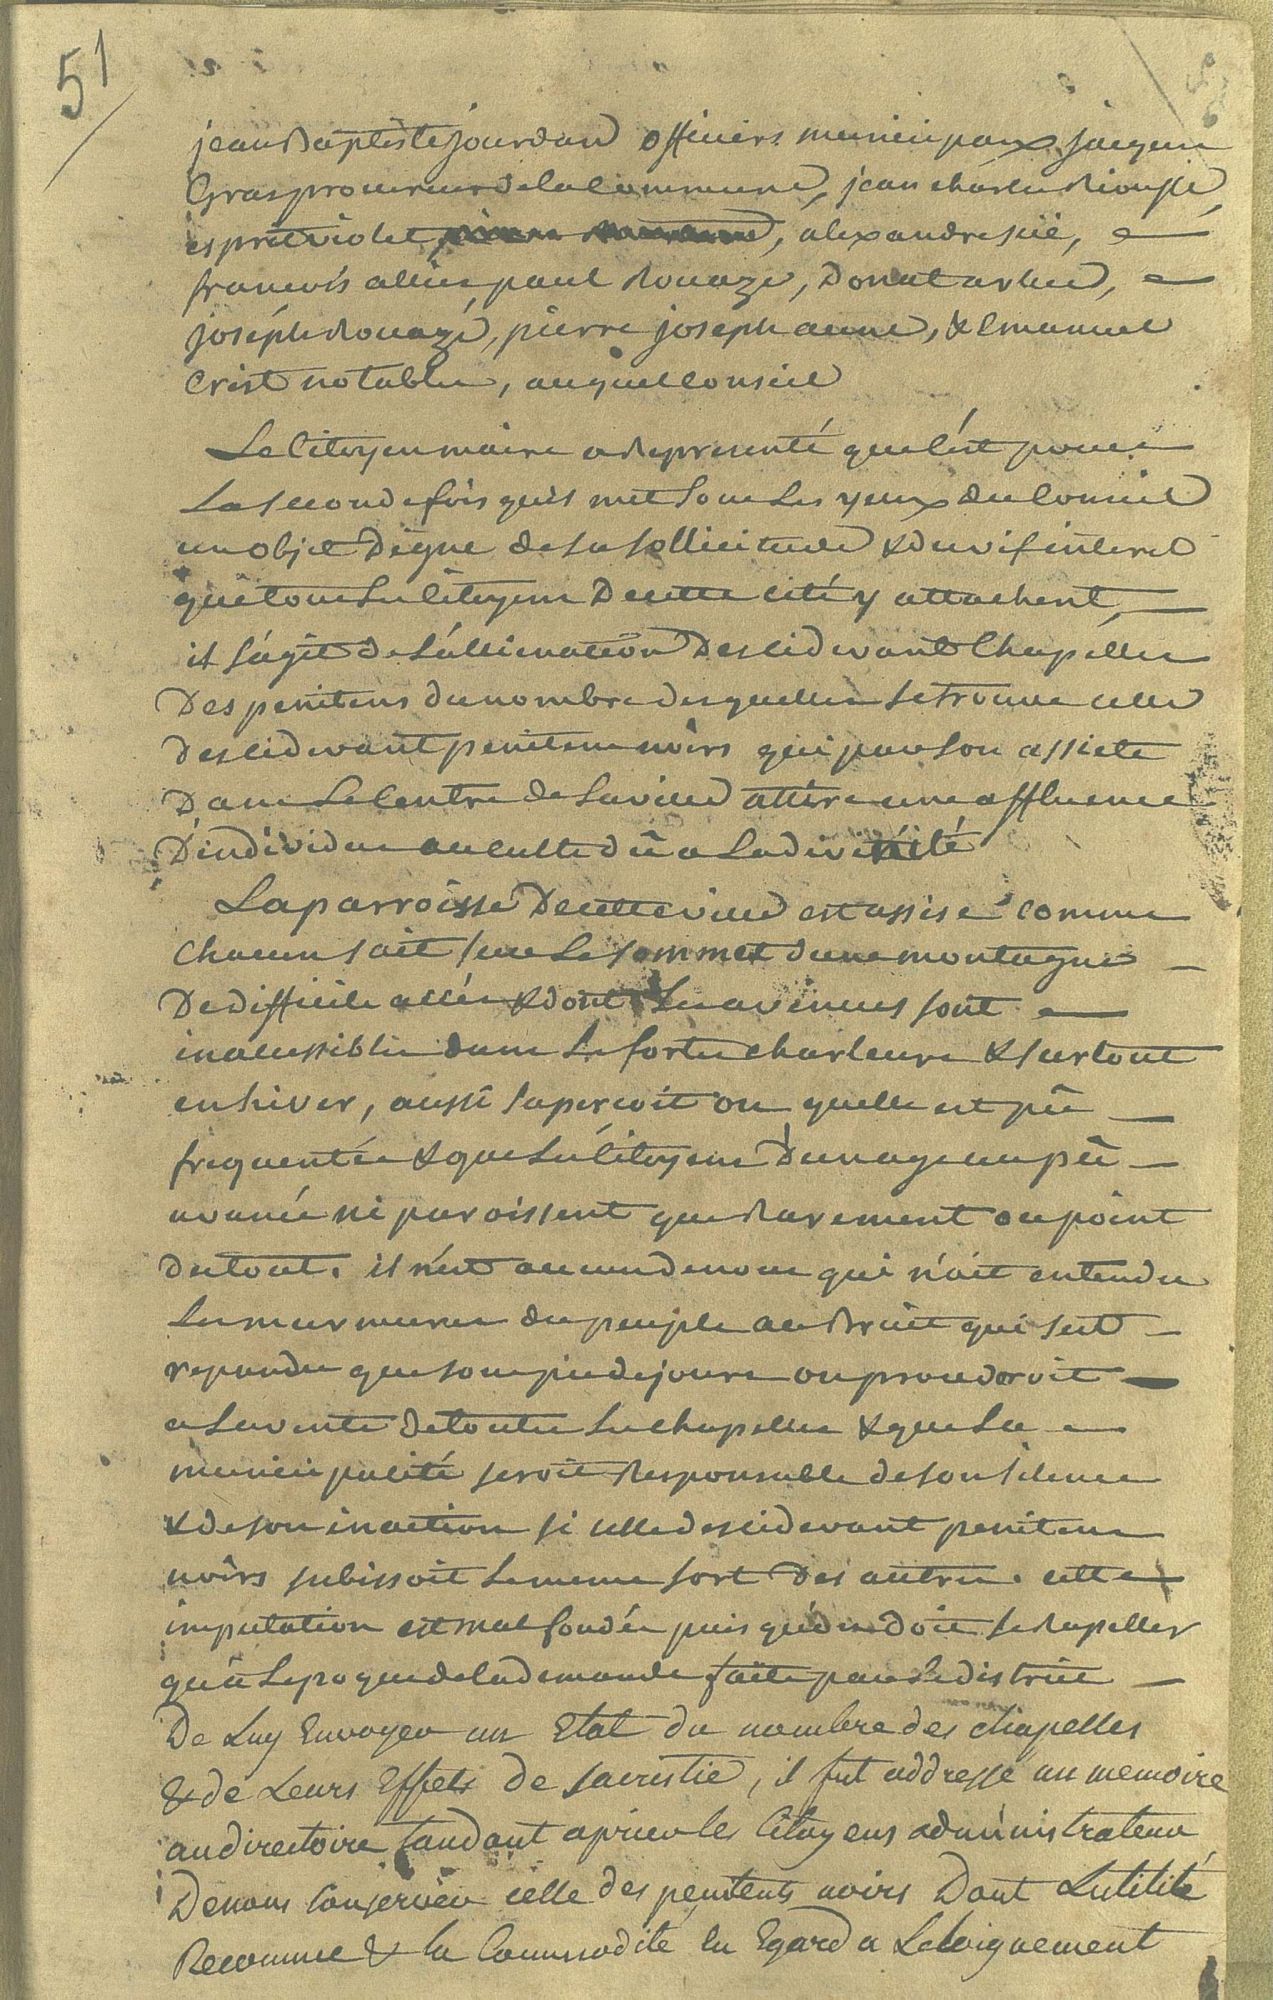 51
jean Baptiste jourdan officiers municipaux, jacques
Gras procureur de la Commune, jean charles Riousse,
esprit violet, alexandre sue,
francois allies, paul Rouaze, Donat arlue,
joseph Rouaze, pierre joseph aune, & Emanuel
Crist notables, auquel Conseil
Le Citoyen maire a Représenté que c'est pour
La seconde fois qu'il met sous Les yeux du Conseil
un objet Digne de sa sollicitude & du vif interet
que tous Les Citoyens De cette cité y attachent,
il s'agit de L'allienation Des cidevant Chapelles
Des penitens du nombre desquelles se trouve celle
Des cidevant penitens noirs qui par son assiete
Dans Le Centre de La ville attire une affluence
D'individus au culte dû a La divinité
La parroisse De cette ville est assise comme
chacun sait sur Le sommet d'une montagne
De difficile allée & dont Les avenues sont
inacessibles dans Les fortes chaleurs & surtout
en hiver, aussi s'apercoit on quelle est peu
frequentée & que Les Citoyens D'un age un peu
avancé ni paroissent que Rarement ou point
du tout. il n'est aucun de nous qui n'ait entendu
Les murmures du peuple au Bruit qui s'est
repandu que sous peu de jours on procederoit
a La vente de toutes Les chapelles & que La
municipalité seroit Responsable de son silence
& de son inaction si celle des cidevant penitens
noirs subissoit Le meme sort Des autres. cette
imputation est mal fondée puis qu'on doit se Rapeller
qu'a L'epoque de la demande faite par Le district
De Luy Envoyer un Etat du nombre des chapelles
& de Leurs Effets de sacristie, il fut addressé un memoire
au directoire tandant a prier les Citoyens administrateurs
De nous Conserver celle des penitents noirs Dont L'utilité
Reconnue & la Commodité Eu Egard a L'eloignement